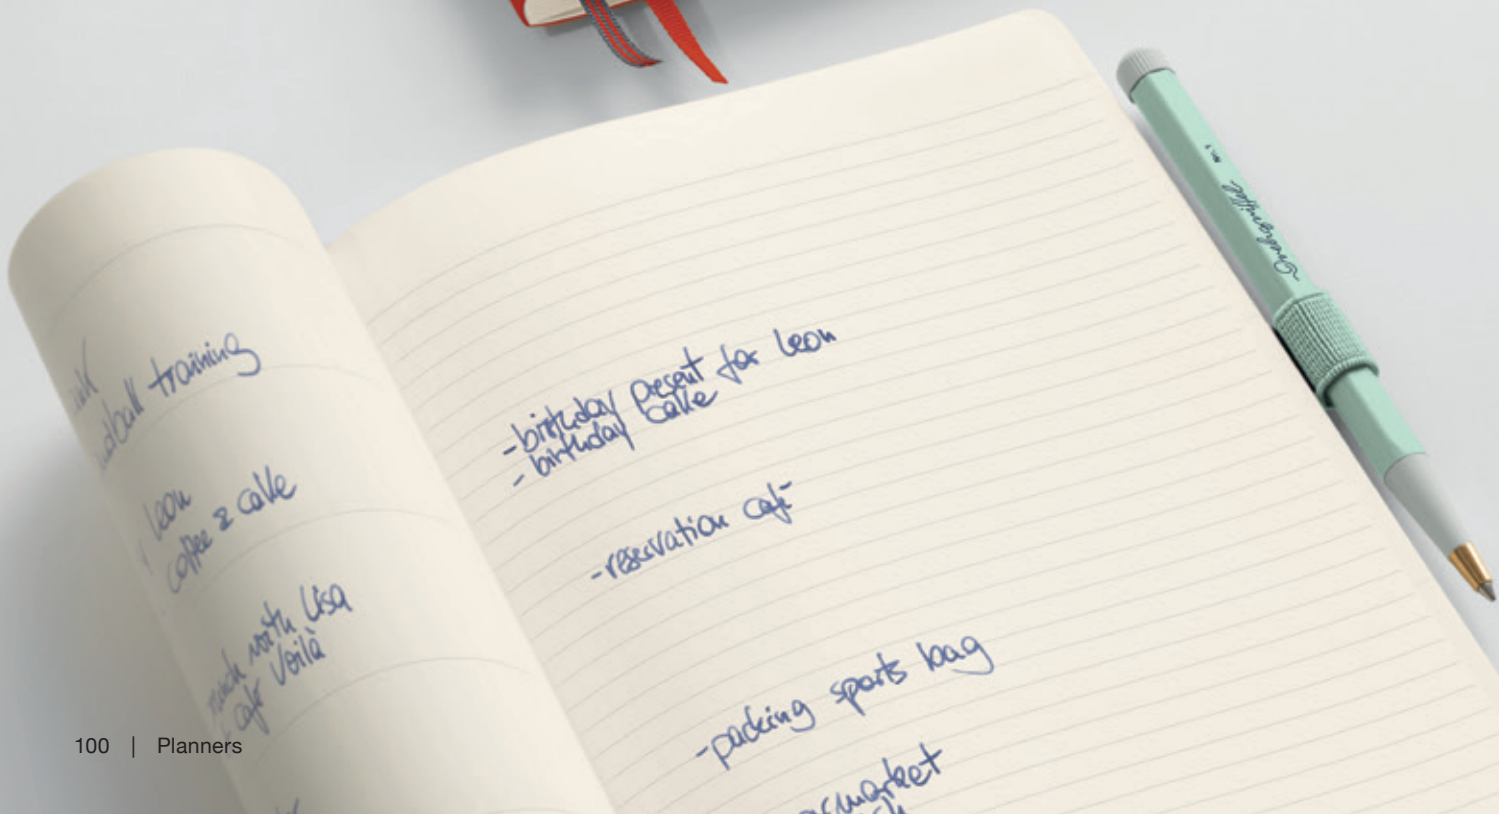 training
leon
coffee & cake
with Lisa
café Voilà
-birthday present for leon
- birthday cake
-reservation café
-packing sports bag
100 | Planners
Drehgriffel
Nr. 1